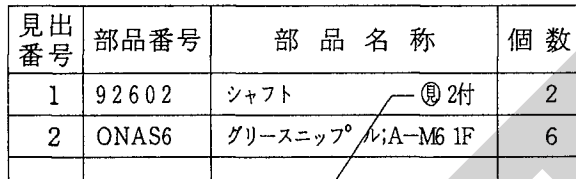 見出番号 部品番号 部品名称 個数
1 92602 シャフト ㊥見 2付 2
2 ONAS6 グリースニップル;A-M6 1F 6